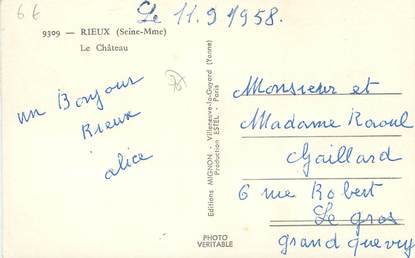 6€
Le 11.9 1958.
9309 — RIEUX (Seine-Mme)
Le Château
un Bonjour
Rieux
alice
Editions MIGNON - Villeneuve-la-Guyard (Yonne)
Production ESTEL - Paris
Monsieur et
Madame Raoul
Gaillard
6 rue Robert
Le gros
grand quevy
PHOTO
VERITABLE